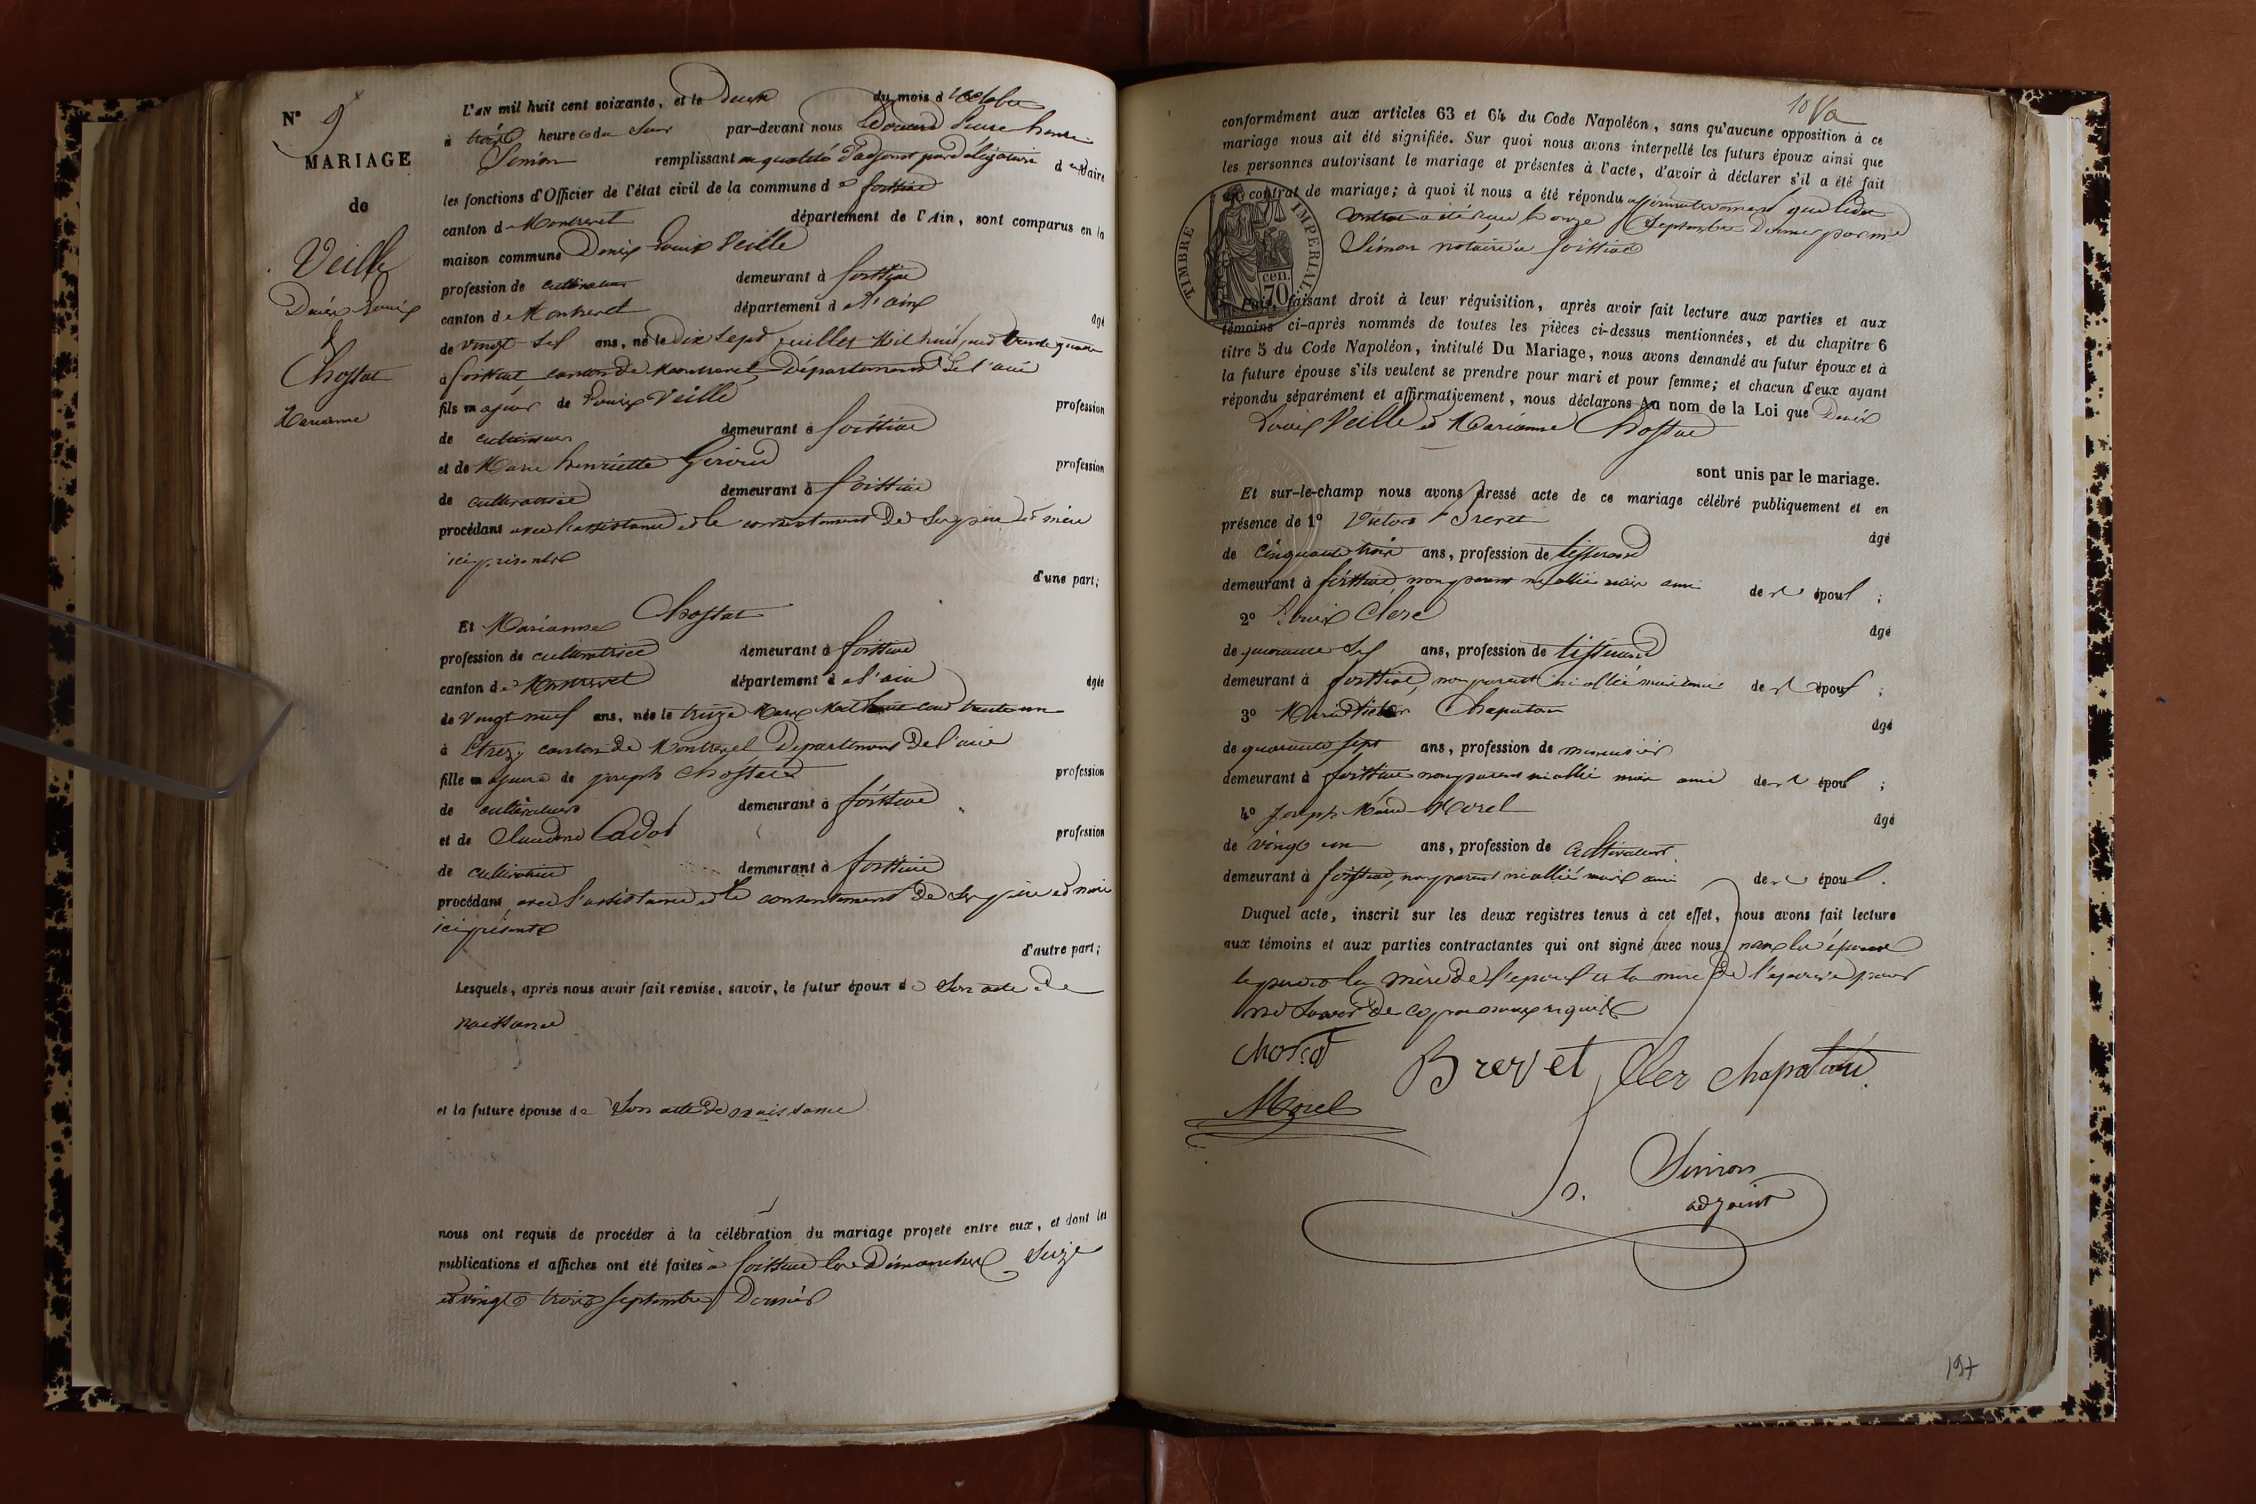 N° 9
MARIAGE
de
Veille
Denis Louis
&
Chossat
Marianne
L'an mil huit cent soixante, et le deux du mois d'octobre
à trois heures du soir par-devant nous Edouard Pierre henri
Simon remplissant en qualité d'adjoint par délégation du Maire
les fonctions d'Officier de l'état civil de la commune de foissiat
canton de Montrevel département de l'Ain, sont comparus en la
maison commune Denis Louis Veille
profession de cultivateur demeurant à foissiat
canton de Montrevel département de l'ain âgé
de vingt six ans, né le dix sept juillet mil huit cent trente quatre
à foissiat canton de Montrevel Département de l'ain
fils majeur de Louis Veille profession
de cultivateur demeurant à foissiat
et de Marie henriette Giroud profession
de cultivatrice demeurant à foissiat
procédant avec l'assistance et le consentement de ses père et mère
ici présents
d'une part;
Et Marianne Chossat
profession de cultivatrice demeurant à foissiat
canton de Montrevel département de l'ain âgée
de vingt neuf ans, née le treize Mars Mil huit cent trente un
à Etrez, canton de Montrevel Département de l'ain
fille majeure de joseph Chossat profession
de cultivateur demeurant à foissiat
et de Claudine Cadot profession
de cultivatrice demeurant à foissiat
procédant avec l'assistance et le consentement de ses père et mère
ici présents
d'autre part;
Lesquels, après nous avoir fait remise, savoir, le futur époux de Son acte de
naissance
et la future épouse de Son acte de naissance
nous ont requis de procéder à la célébration du mariage projeté entre eux, et dont les
publications et affiches ont été faites à foissiat les Dimanches Seize
et vingt trois septembre Dernier
conformément aux articles 63 et 64 du Code Napoléon, sans qu'aucune opposition à ce
mariage nous ait été signifiée. Sur quoi nous avons interpellé les futurs époux ainsi que
les personnes autorisant le mariage et présentes à l'acte, d'avoir à déclarer s'il a été fait
un contrat de mariage; à quoi il nous a été répondu affirmativement que ledit
contrat a été reçu le onze Septembre Dernier par Me
Simon notaire à foissiat
TIMBRE IMPERIAL
70 cen.
Puis, faisant droit à leur réquisition, après avoir fait lecture aux parties et aux
témoins ci-après nommés de toutes les pièces ci-dessus mentionnées, et du chapitre 6
titre 5 du Code Napoléon, intitulé Du Mariage, nous avons demandé au futur époux et à
la future épouse s'ils veulent se prendre pour mari et pour femme; et chacun d'eux ayant
répondu séparément et affirmativement, nous déclarons Au nom de la Loi que Denis
Louis Veille et Marianne Chossat
sont unis par le mariage.
Et sur-le-champ nous avons dressé acte de ce mariage célébré publiquement et en
présence de 1° Victor Brevet âgé
de cinquante trois ans, profession de tisserand
demeurant à foissiat non parent ni allié mais ami de l' époux;
2° Louis Clerc âgé
de quarante six ans, profession de tisserand
demeurant à foissiat, non parent ni allié mais ami de l' époux;
3° Chapatou âgé
de quarante sept ans, profession de menuisier
demeurant à foissiat non parent ni allié mais ami de l' époux;
4° Joseph Marie Morel âgé
de vingt un ans, profession de cultivateur
demeurant à foissiat, non parent ni allié mais ami de l' époux.
Duquel acte, inscrit sur les deux registres tenus à cet effet, nous avons fait lecture
aux témoins et aux parties contractantes qui ont signé avec nous, non les époux
le père et la mère de l'époux et la mère de l'épouse pour
ne savoir de ce par nous requis
Chossat
Brevet Cler
Morel
Simon
adjoint
197